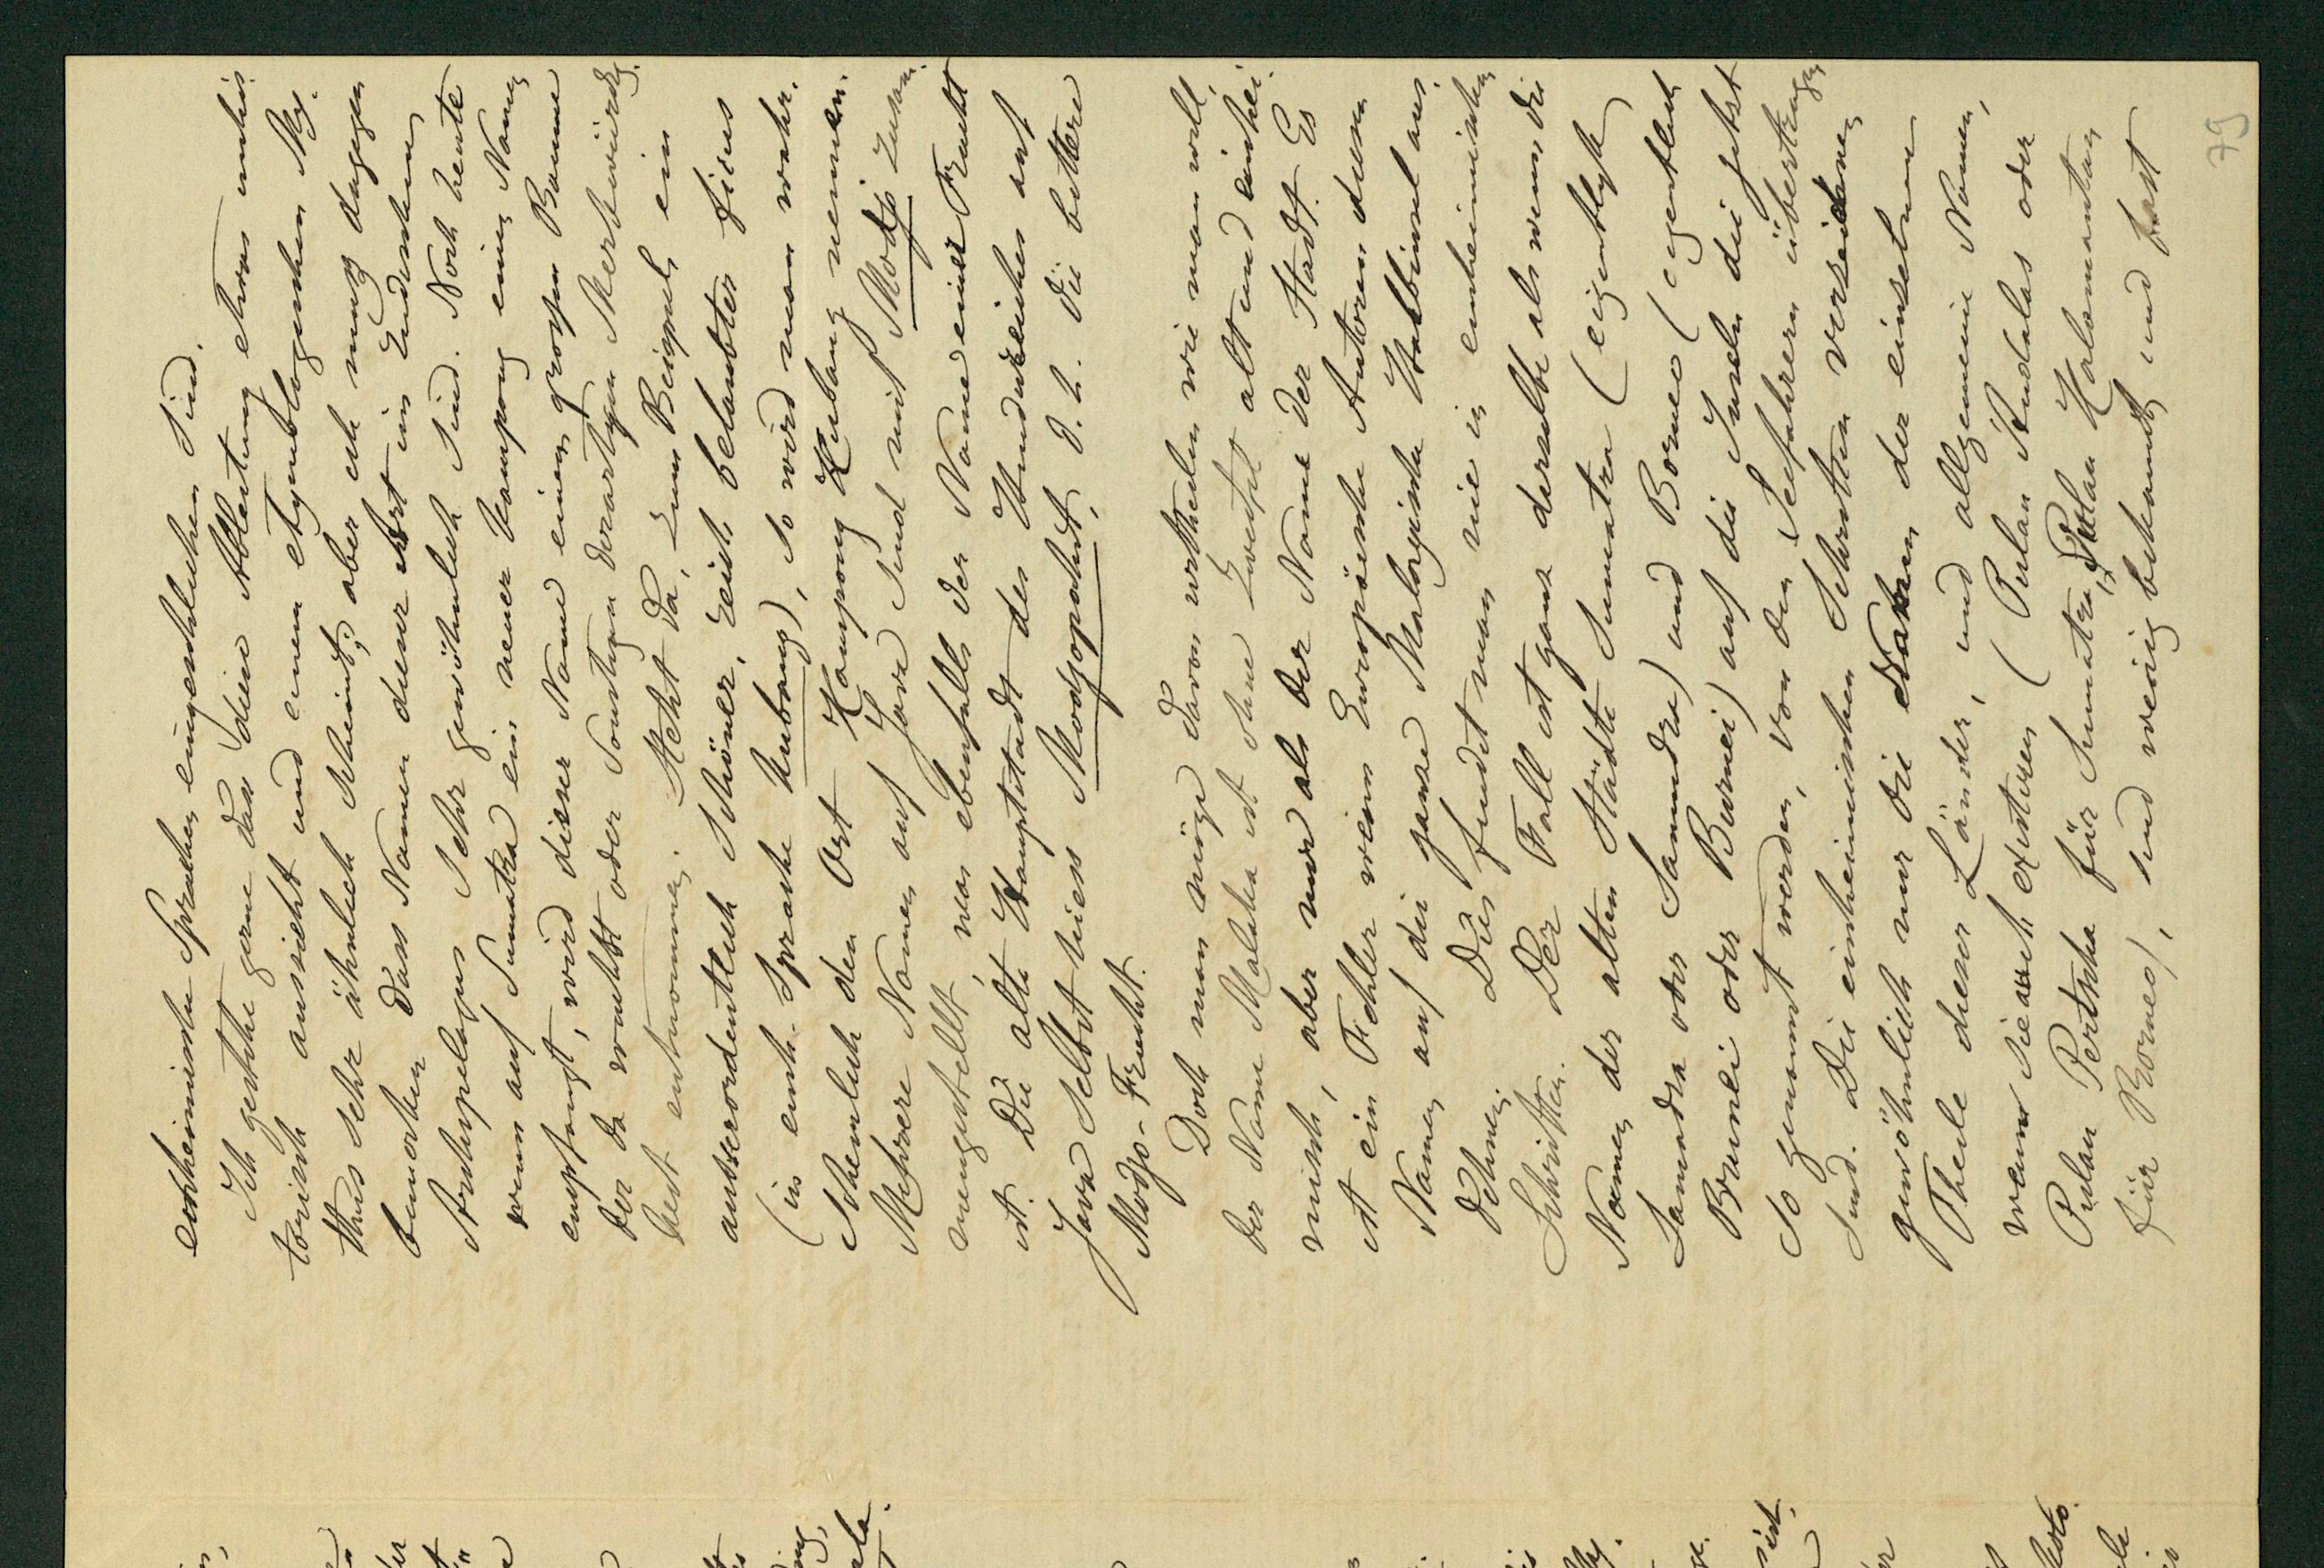 einheimische Sprachen eingeschlichen sind.
Ich gestehe gerne dass diese Ableitung etwas unhis-
torisch aussieht und einem etymologischen My-
thus sehr ähnlich scheint; aber ich muss dagegen
bemerken dass Namen dieser Art im Indischen
Archipelagus sehr gewöhnlich sind. Noch heute
wenn auf Sumatra ein neuer Kampong einen Namen
empfangt, wird dieser Name einem grossen Baume
der da wächst oder sonstigen derartigen Merkwürdig-
keit entnommen. Steht da, zum Beispiel, ein
ausserordentlich schöner, reich belaubter ficus
(in einh. Sprache kubang), so wird man wahr-
scheinlich den Ort Kampong Kubang nennen.
Mehrere Namen auf Java sind mit Modjo zusam-
mengestellt, was ebenfalls der Name einer Frucht
ist. Die alte Hauptstadt des Hindureiches auf
Java selbst hiess Modjopahit, d. h. die bittere
Modjo-Frucht.
Doch man möge davon urtheilen wie man will,
der Name Malaka ist ohne Zweifel alt und einhei-
misch, aber nur als der Name der Stadt. Es
ist ein Fehler wenn Europäische Autoren diesen
Namen auf die ganze Malayische Halbinsel aus-
dehnen. Dies findet man nie in einheimischen
Schriften. Der Fall ist ganz derselbe als wenn die
Namen der alten Städte Sumatra (eigentlich
Samadra oder Samudra) und Borneo (eigentlich
Brunei oder Burnei) auf die Inseln die jetzt
so genannt werden, von den Seefahrern übertragen
sind. Die einheimischen Schriften verseichnen
gewöhnlich nur die Namen der einselnen
Theile dieser Länder, und allgemeine Namen,
wenn sie auch existiren (Pulau Andalas oder
Pulau Pertcha für Sumatra, Pulau Kalamantan
für Borneo), sind wenig bekannt und fast
79